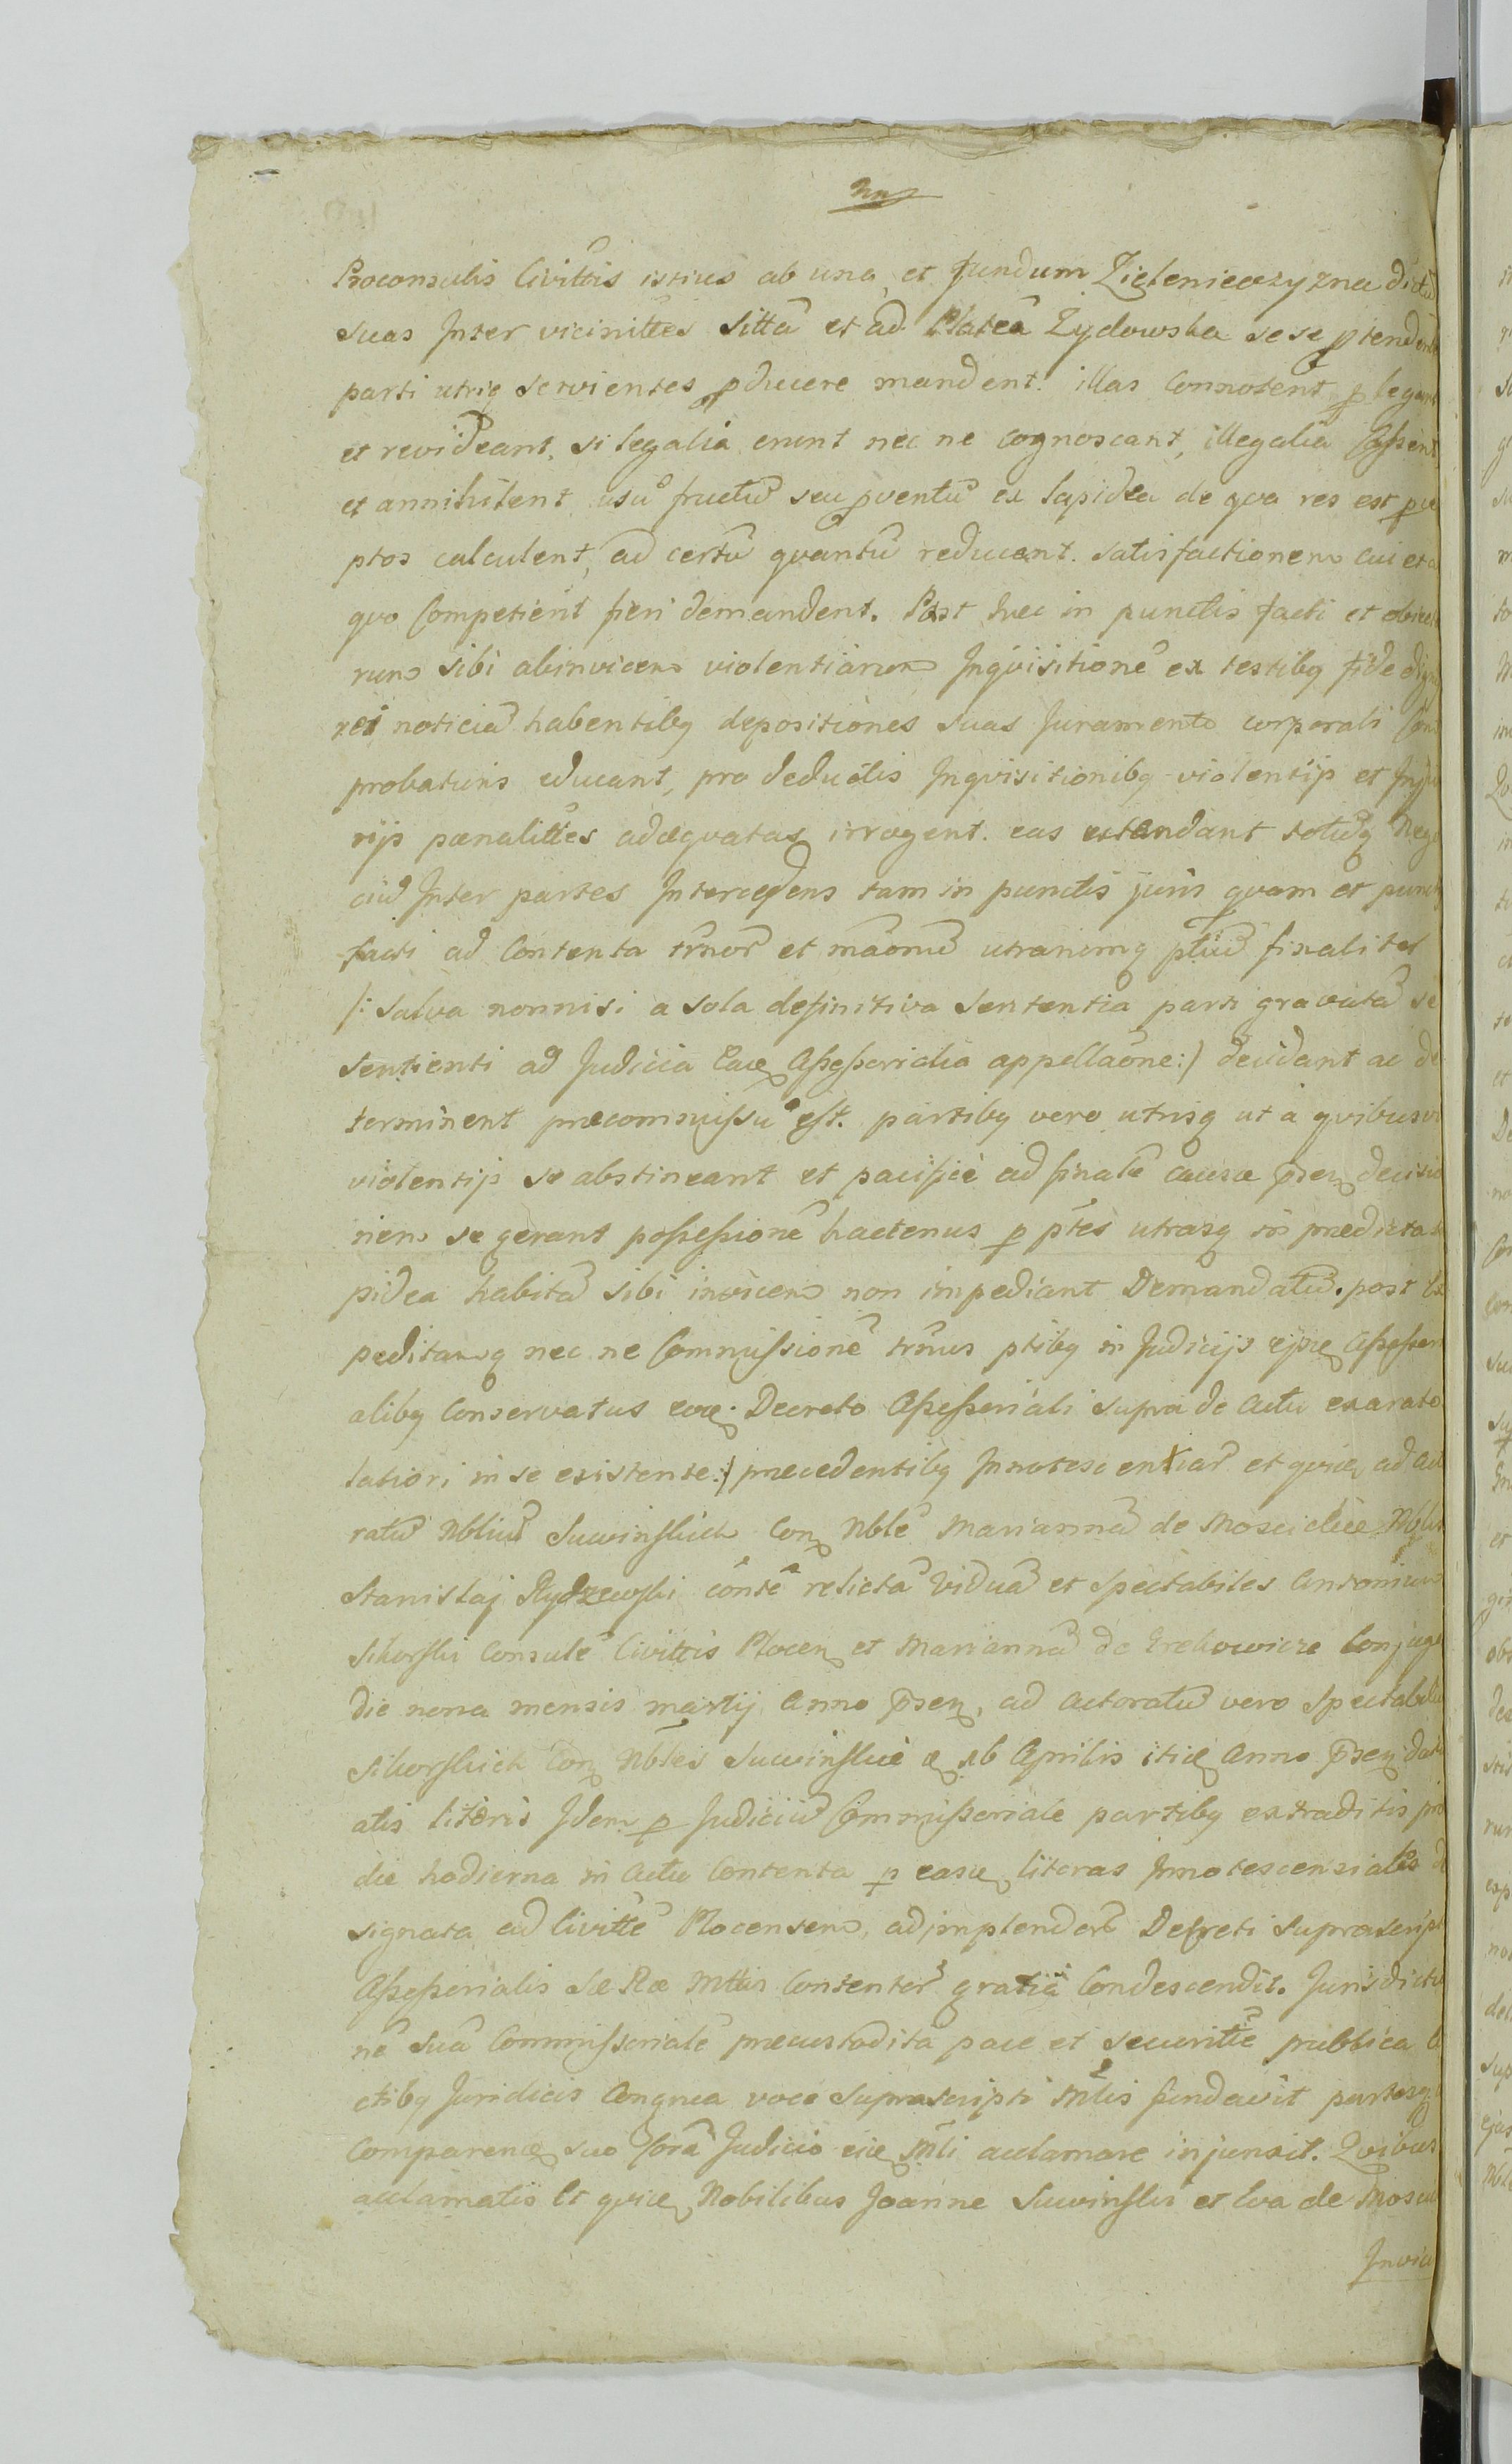 Proconsulis Civittis istius ab una, et fundum Zielenieczyzna dictũ
suas Inter vicinittes sittã et ad Plateã Zydowska sese ptendente
parti utriq servientes pducere mandent. illas Connotent, plegant
et revideant, si legalia erunt nec ne cognoscant, illegalia Caßent
et annihilent, usũ fructũ seu pventũ ex lapidea de qva res est pce
ptos calculent, ad certũ qvantũ reducent. satisfactionem cui et a
qvo Competient fieri demandent. Post haec in punctis facti et obiecta
rum sibi abinvicem violentiarum Inqvisitionẽ ex testibq fide dignis
rei noticiã habentibq depositiones suas Juramento corporali Com
probaturis educant, pro deductis Inqvisitionibq violentijs et Inju
rijs pænalittes adæqvatas irrogent. eas extendant totũq Nego
ciũ Inter partes Intercedens tam in punctis juris qvam et punctis
facti ad Contenta trnor et mãonũ utrarumq ptiũ finaliter
/: salva nonnisi a sola definitiva Sententia parti gravatã se
sentienti ad Judicia Eaq Aßeßorialia appellaõne :/ decidant ac de
terminent præcommissũ est. partibq vero utrisq ut à qvibusvis
violentijs se abstineant et pacificè ad finalẽ causæ psen decisio
nem se gerant poßeßionẽ hactenus p ptes utrasq in prædicta la
pidea habitã sibi invicem non impediant Demandatũ. post Ex
peditamq nec ne Commissionẽ trnus ptibq in Judicijs ejsq Aßeßori
alibq Conservatus eoq. Decreto Aßeßoriali supra de Actu exarato
latiori in se existente :/ præcedentibq Innotescentiar et qvidq ad Acto
ratũ Nbliũ Suwinskich Con Nblẽ Mariannã de Moscickie Nblis
Stanislaj Rydzewski contẽ relictã Viduã et Spectabiles Antonium
Sikorski Consulẽ Civittis Plocen et Mariannã de Grekowicze Conjuges
die nona mensis martij Anno psen, ad Actoratũ vero Spectabiliũ
Sikorskich Con Nbles Suwinskie æ xb Aprilis itiq Anno psen dat
atis literis Idem p Judiciũ Commißoriale partibq extraditis pro
die hodierna in Actu Contenta p easq literas Innotescenciales de
signata ad Civittẽ Plocensem, adimplendor Decreti Suprascripti
Aßeßorialis Sæ Ræ Mttis Contentor gratiâ Condescendit. Jurisdictio
nẽ suã Commissorialẽ præcustodita pace et securittẽ publica
ctibq Juridicis Congrua voce Suprascripti Mlis fundavit partesq
Comparen suo corã Judicio eiq Mli acclamare injunxit. Qvibus
acclamatis et qvidq Nobilibus Joanne Suwinski et Eva de Mosci
Invic